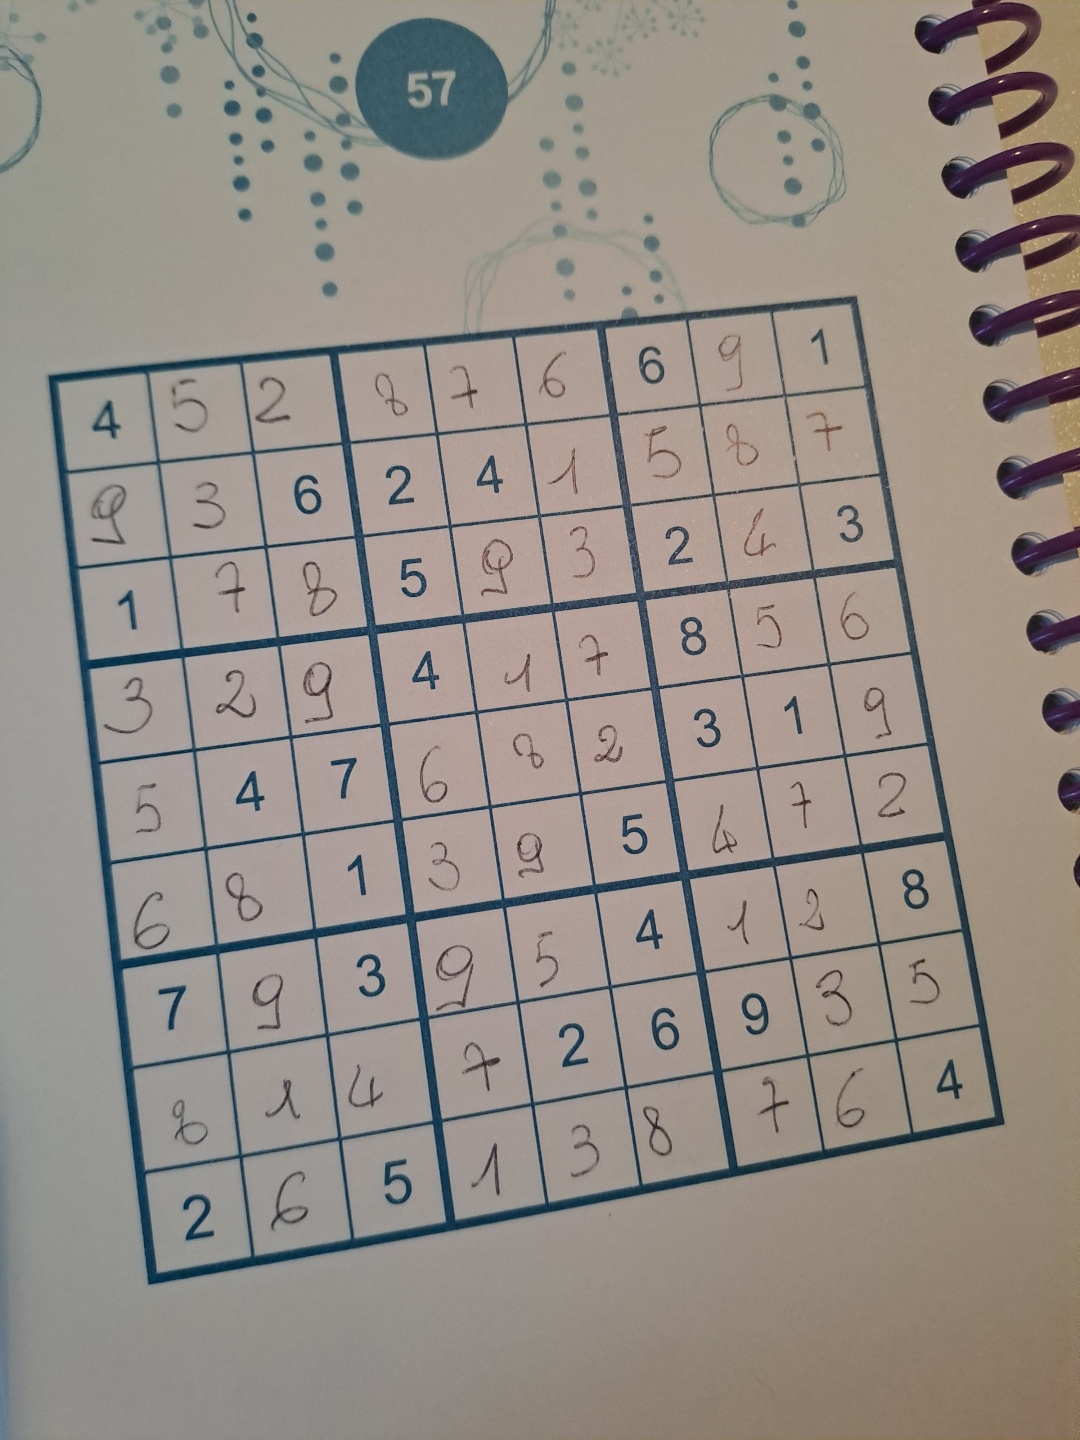 57
4 5 2 8 7 6 6 9 1
9 3 6 2 4 1 5 8 7
1 7 8 5 9 3 2 4 3
3 2 9 4 1 7 8 5 6
5 4 7 6 8 2 3 1 9
6 8 1 3 9 5 4 7 2
7 9 3 9 5 4 1 2 8
8 1 4 7 2 6 9 3 5
2 6 5 1 3 8 7 6 4